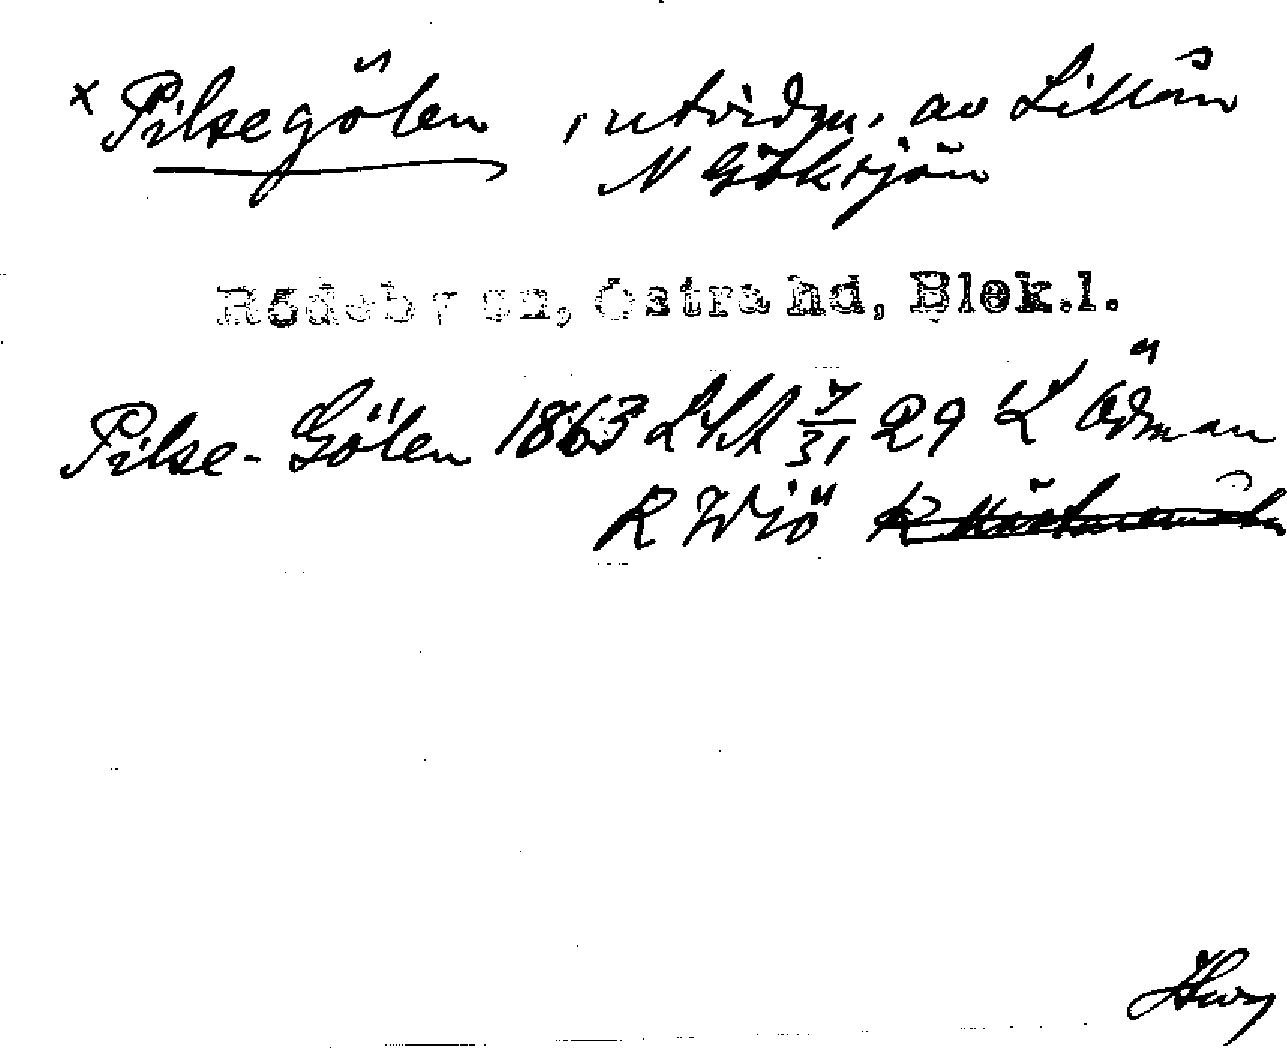 × Pilsegölen, utvidgn. av Lillån
N Göksjön
Rödeby sn, Östra hd, Blek.l.
Pilse-Gölen 1863 LSA 7/31 29 K Ödman
R Wiö